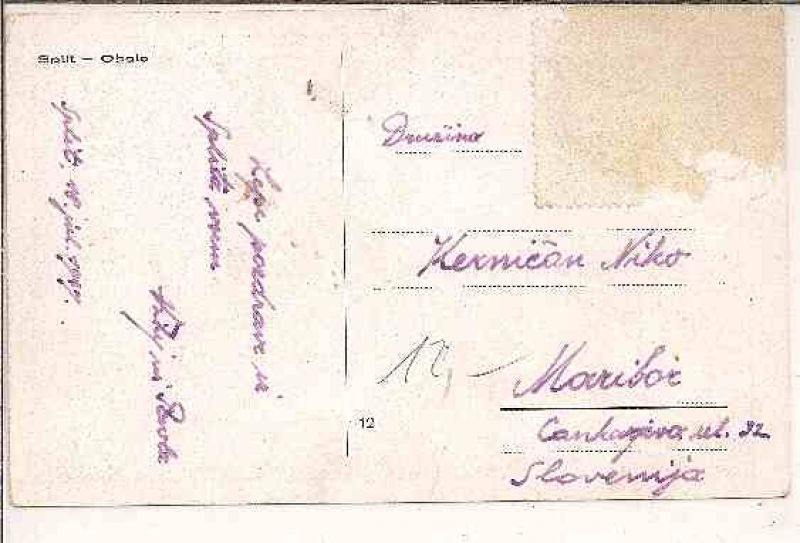 Split – Obala
Split, 18. jul. 1949.
Lepe pozdrave iz
Splita vsem
in
Družina
Kerničan Niko
12,-
Maribor
Cankarjeva ul. 32
Slovenija
12